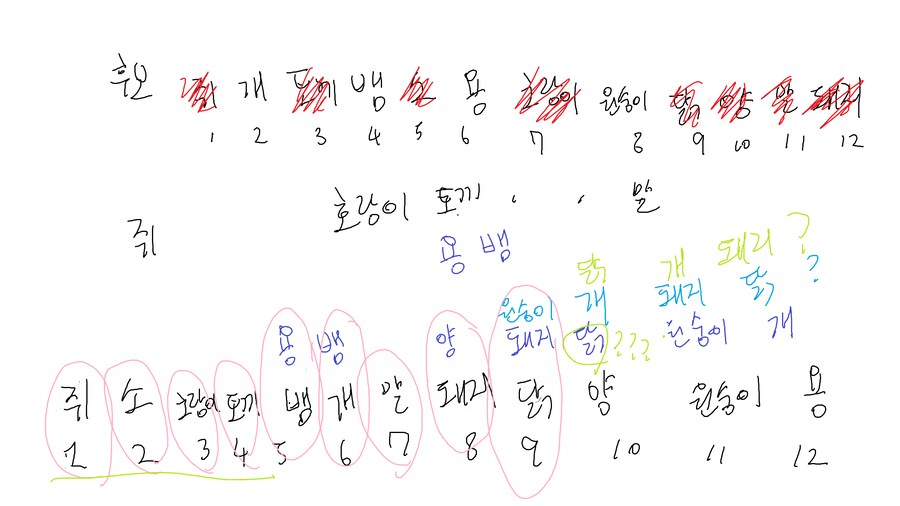 후보 개 뱀 용 원숭이
1 2 3 4 5 6 7 8 9 10 11 12
호랑이 토끼 . . 말
쥐
용 뱀
닭 개 돼지 ?
원숭이 개 돼지 닭 ?
용 뱀 양 돼지 닭 ??? 원숭이 개
쥐 소 호랑이 토끼 뱀 개 말 돼지 닭 양 원숭이 용
1 2 3 4 5 6 7 8 9 10 11 12